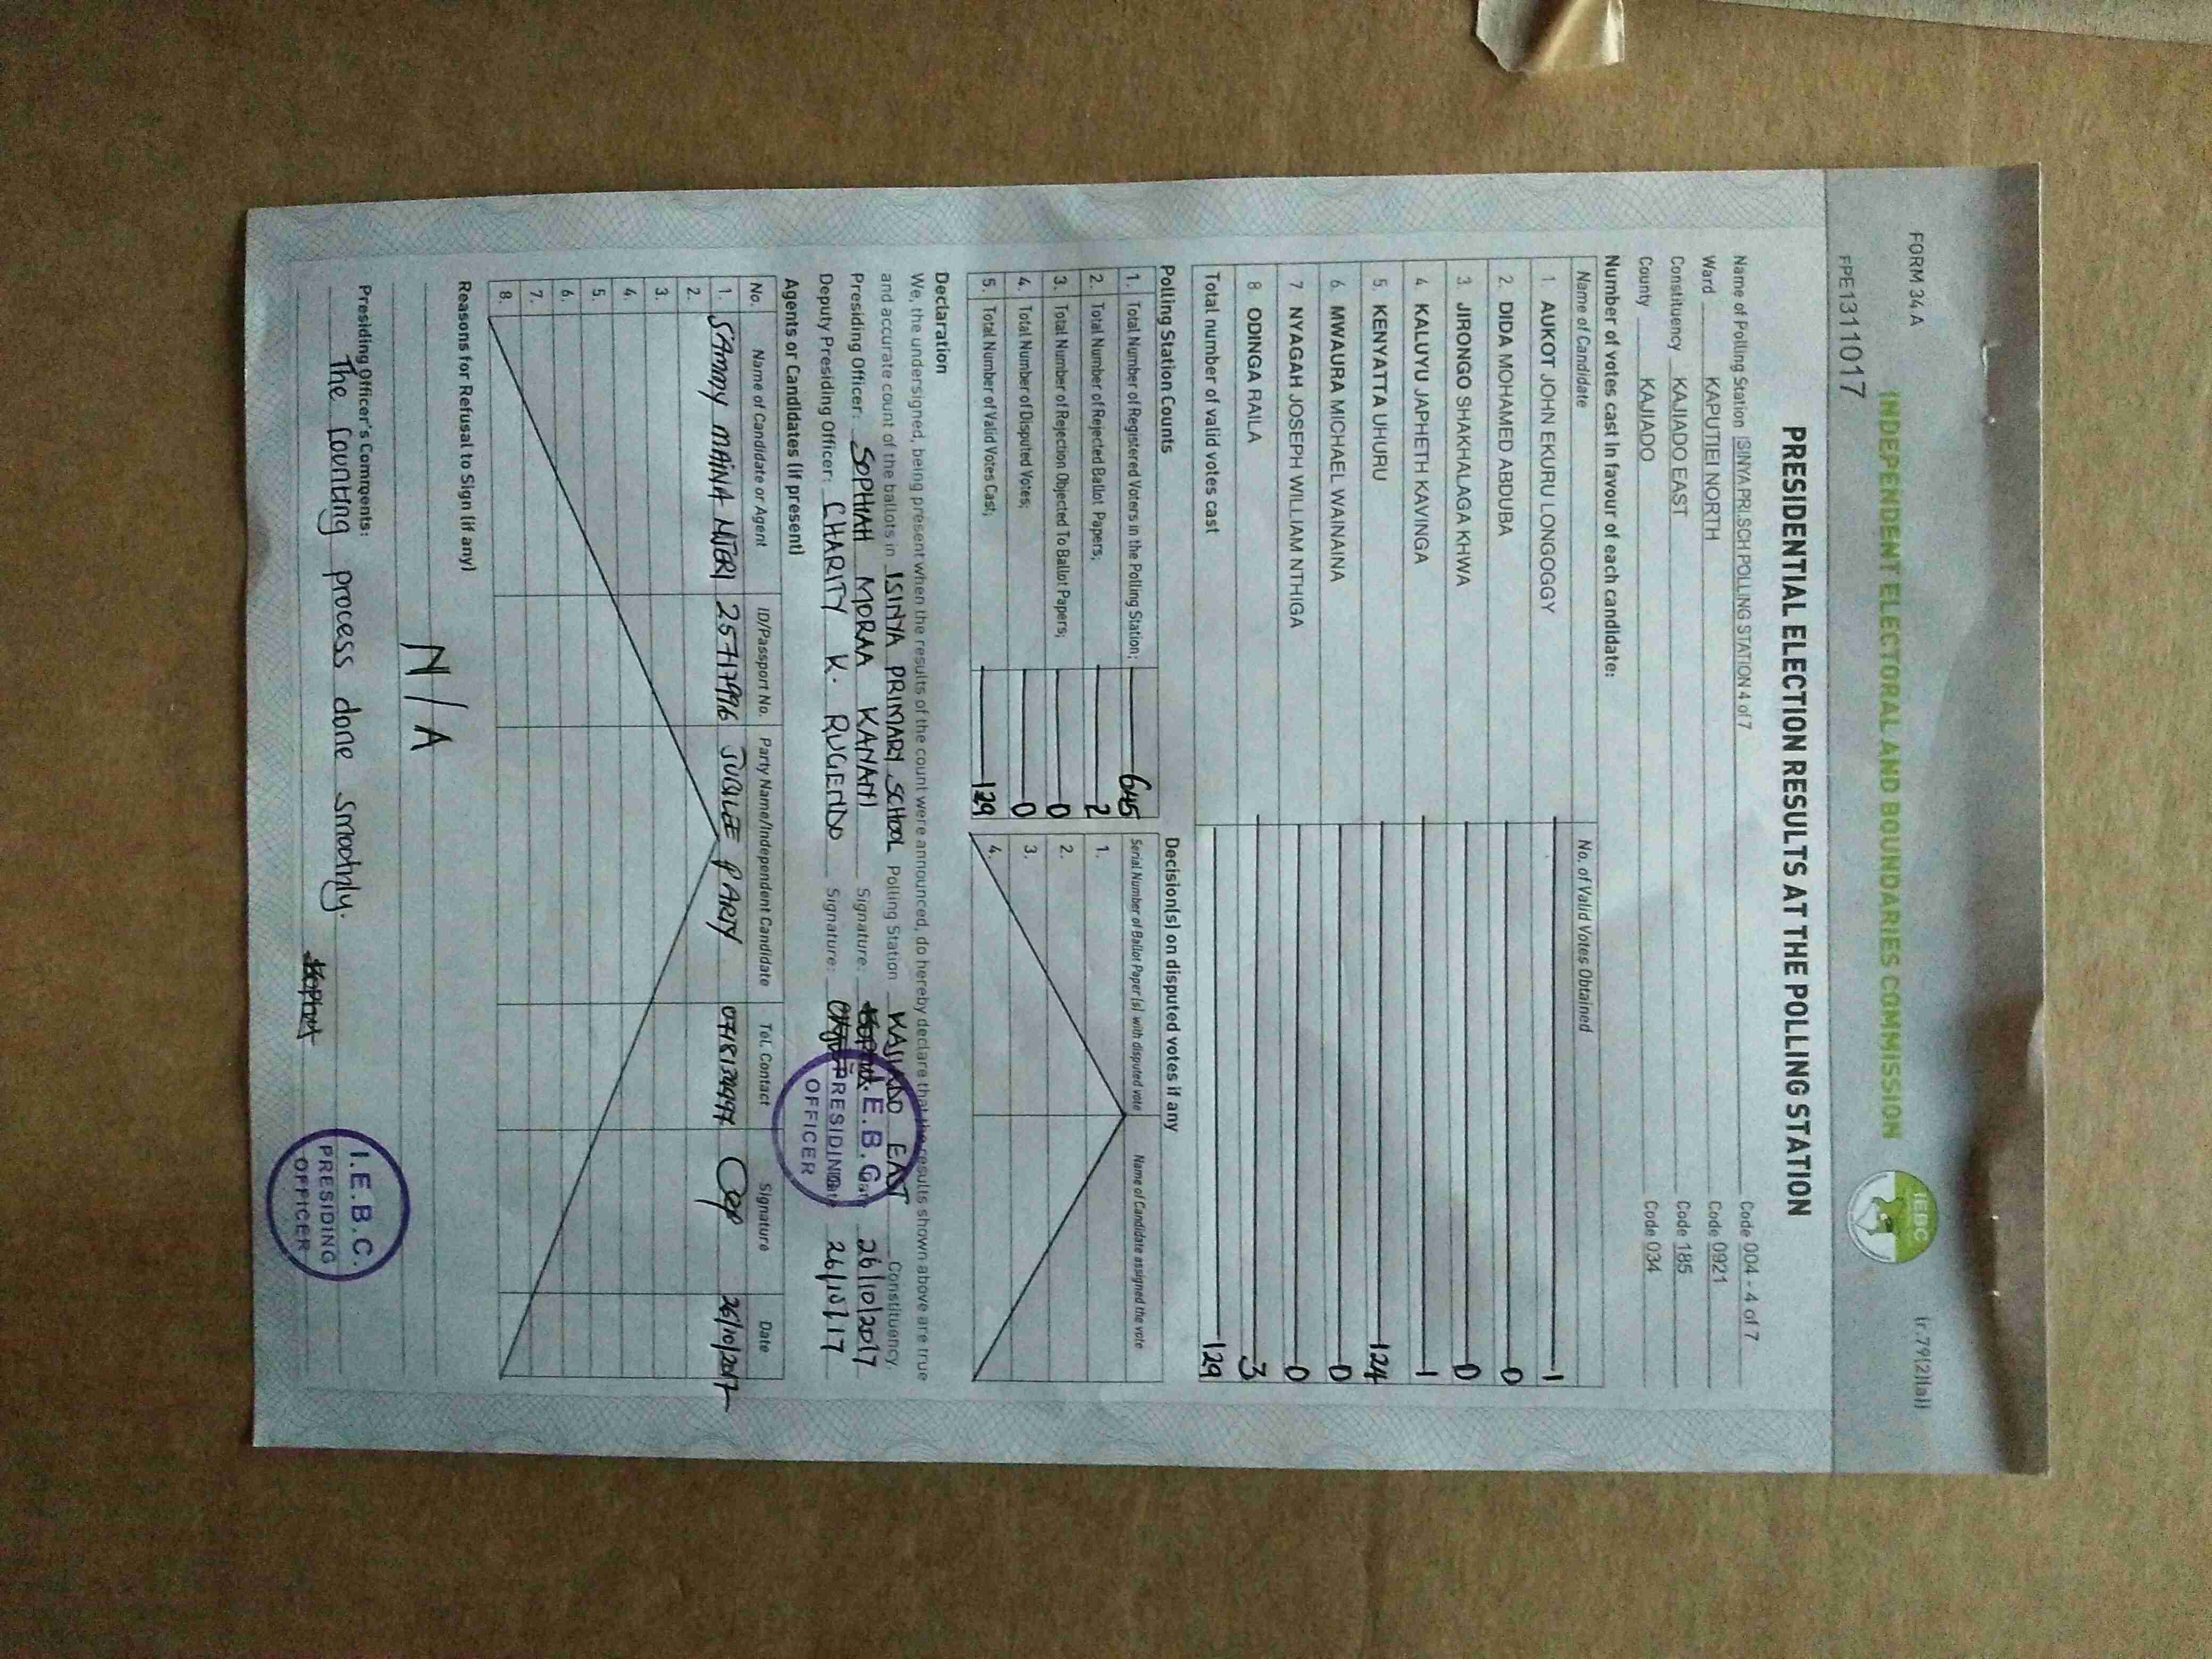 FORM 34A
(r.79(2)(a))
INDEPENDENT ELECTORAL AND BOUNDARIES COMMISSION
IEBC
FPE1311017
PRESIDENTIAL ELECTION RESULTS AT THE POLLING STATION
Name of Polling Station ISINYA PRI.SCH POLLING STATION 4 of 7 Code 004 - 4 of 7
Ward KAPUTIEI NORTH Code 0921
Constituency KAJIADO EAST Code 185
County KAJIADO Code 034
Number of votes cast in favour of each candidate:
Name of Candidate No. of Valid Votes Obtained
1. AUKOT JOHN EKURU LONGOGGY 1
2. DIDA MOHAMED ABDUBA 0
3. JIRONGO SHAKHALAGA KHWA 0
4 KALUYU JAPHETH KAVINGA 1
5. KENYATTA UHURU 124
6. MWAURA MICHAEL WAINAINA 0
7 NYAGAH JOSEPH WILLIAM NTHIGA 0
8. ODINGA RAILA 3
Total number of valid votes cast 129
Polling Station Counts
1. Total Number of Registered Voters in the Polling Station; 645
2. Total Number of Rejected Ballot Papers; 2
3. Total Number of Rejection Objected To Ballot Papers; 0
4. Total Number of Disputed Votes; 0
5. Total Number of Valid Votes Cast; 129
Decision(s) on disputed votes if any
Serial Number of Ballot Paper (s) with disputed vote Name of Candidate assigned the vote
1.
2.
3.
4.
Declaration
We, the undersigned, being present when the results of the count were announced, do hereby declare that the results shown above are true
and accurate count of the ballots in ISINYA PRIMARY SCHOOL Polling Station KAJIADO EAST Constituency
Presiding Officer: SOPHIAH MORAA KANANI Signature: Date 26/10/2017
Deputy Presiding Officer: CHARITY K. RUGENDO Signature: Date 26/10/17
I.E.B.C.
PRESIDING
OFFICER
Agents or Candidates (if present)
No. Name of Candidate or Agent ID/Passport No. Party Name/Independent Candidate Tel. Contact Signature Date
1. SAMMY MAINA NJERI 25717996 JUBILEE PARTY 26/10/2017
2.
3.
4.
5.
6.
7.
8.
Reasons for Refusal to Sign (if any)
N/A
Presiding Officer's Comments:
The counting process done smoothly.
I.E.B.C.
PRESIDING
OFFICER